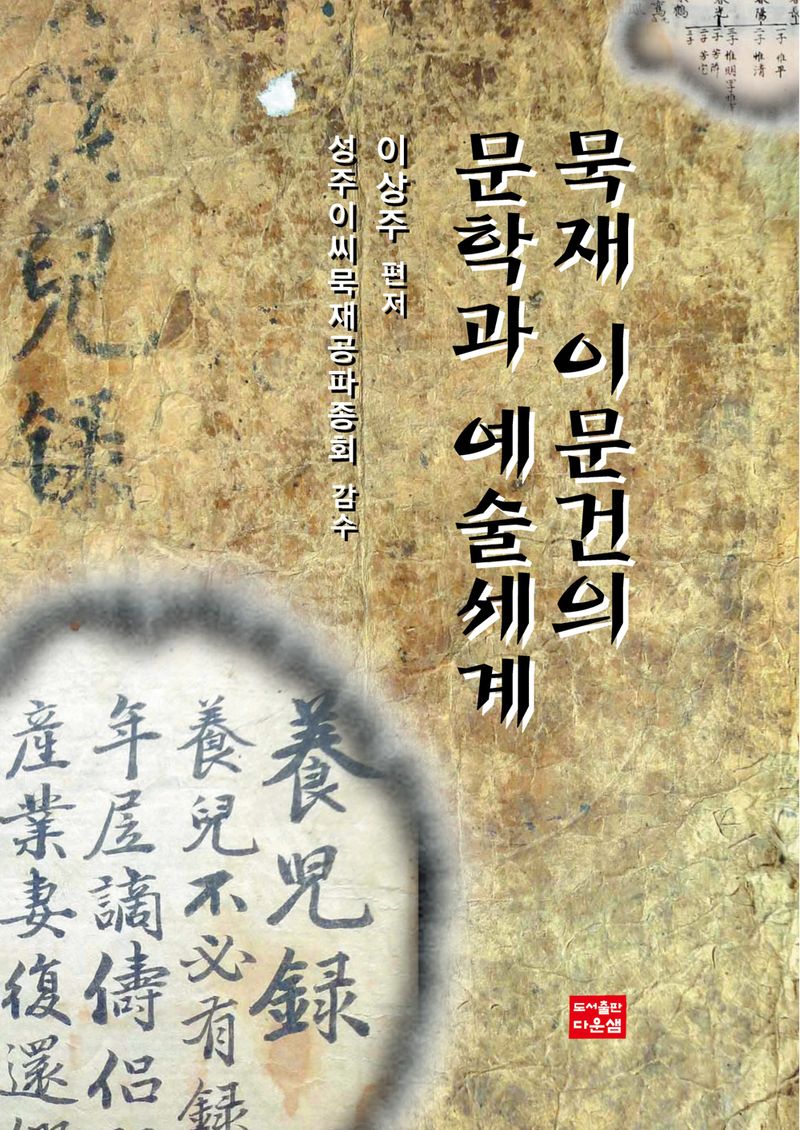 묵재 이문건의
문학과 예술세계
이상주 편저
성주이씨묵재공파종회 감수
兒録
養兒録
養兒不必有録
年居謫儔侶
産業妻復還
도서출판
다운샘